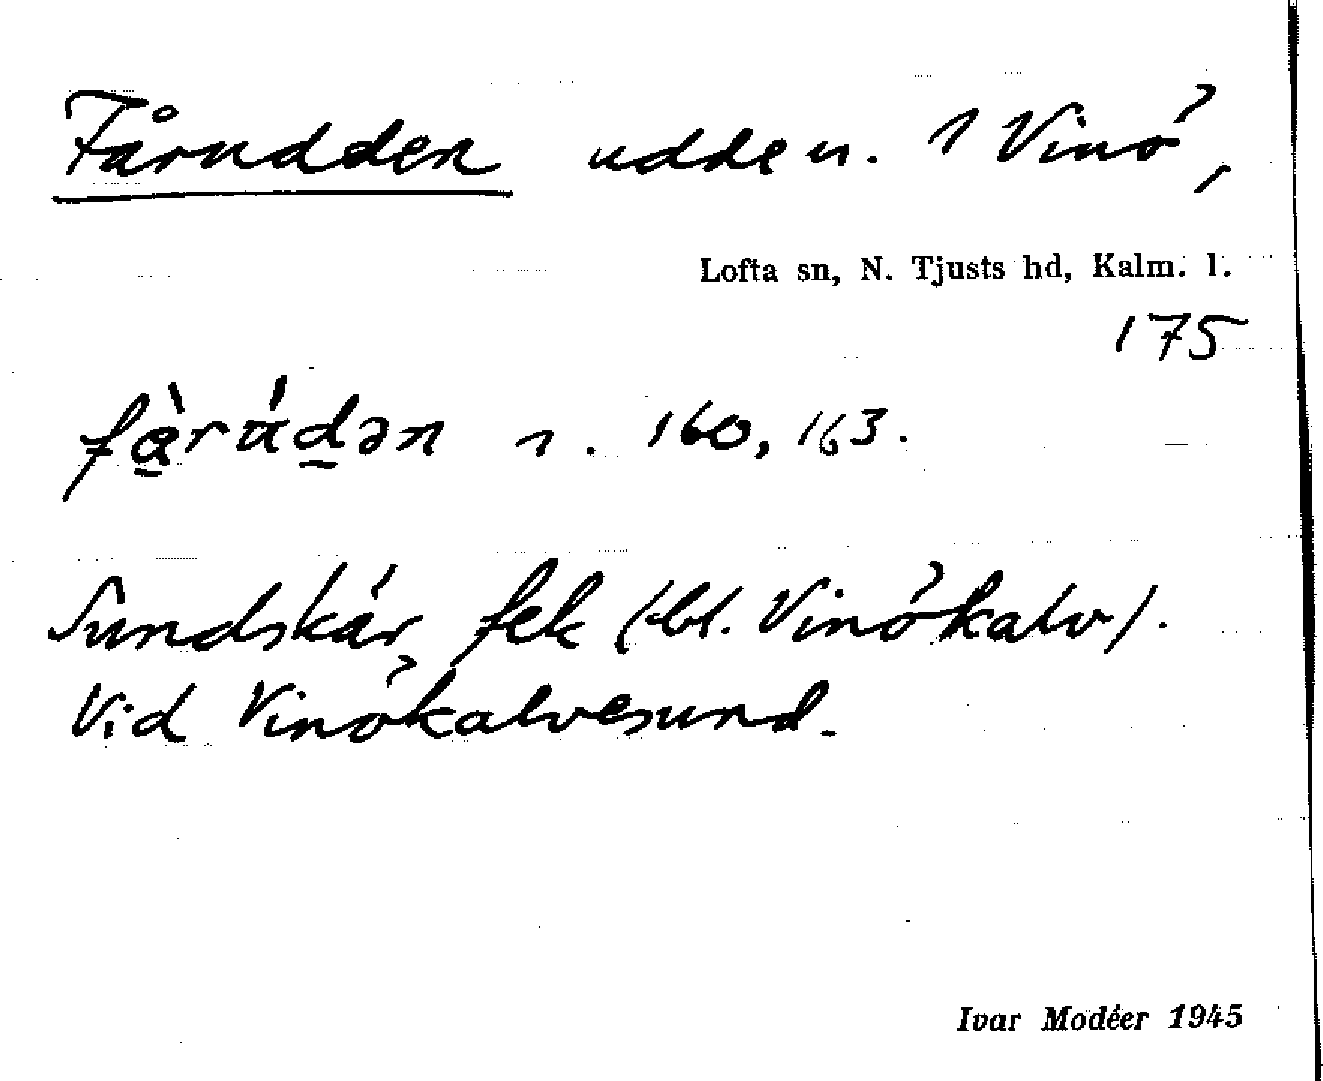 Fårudden udde n. 1 Vinö,
Lofta sn, N. Tjusts hd, Kalm. l.
175
fà̱rúd̲ən n. 160, 163.
Sundskär, fek (tbl. Vinökalv).
Vid Vinökalvesund.
Ivar Modéer 1945